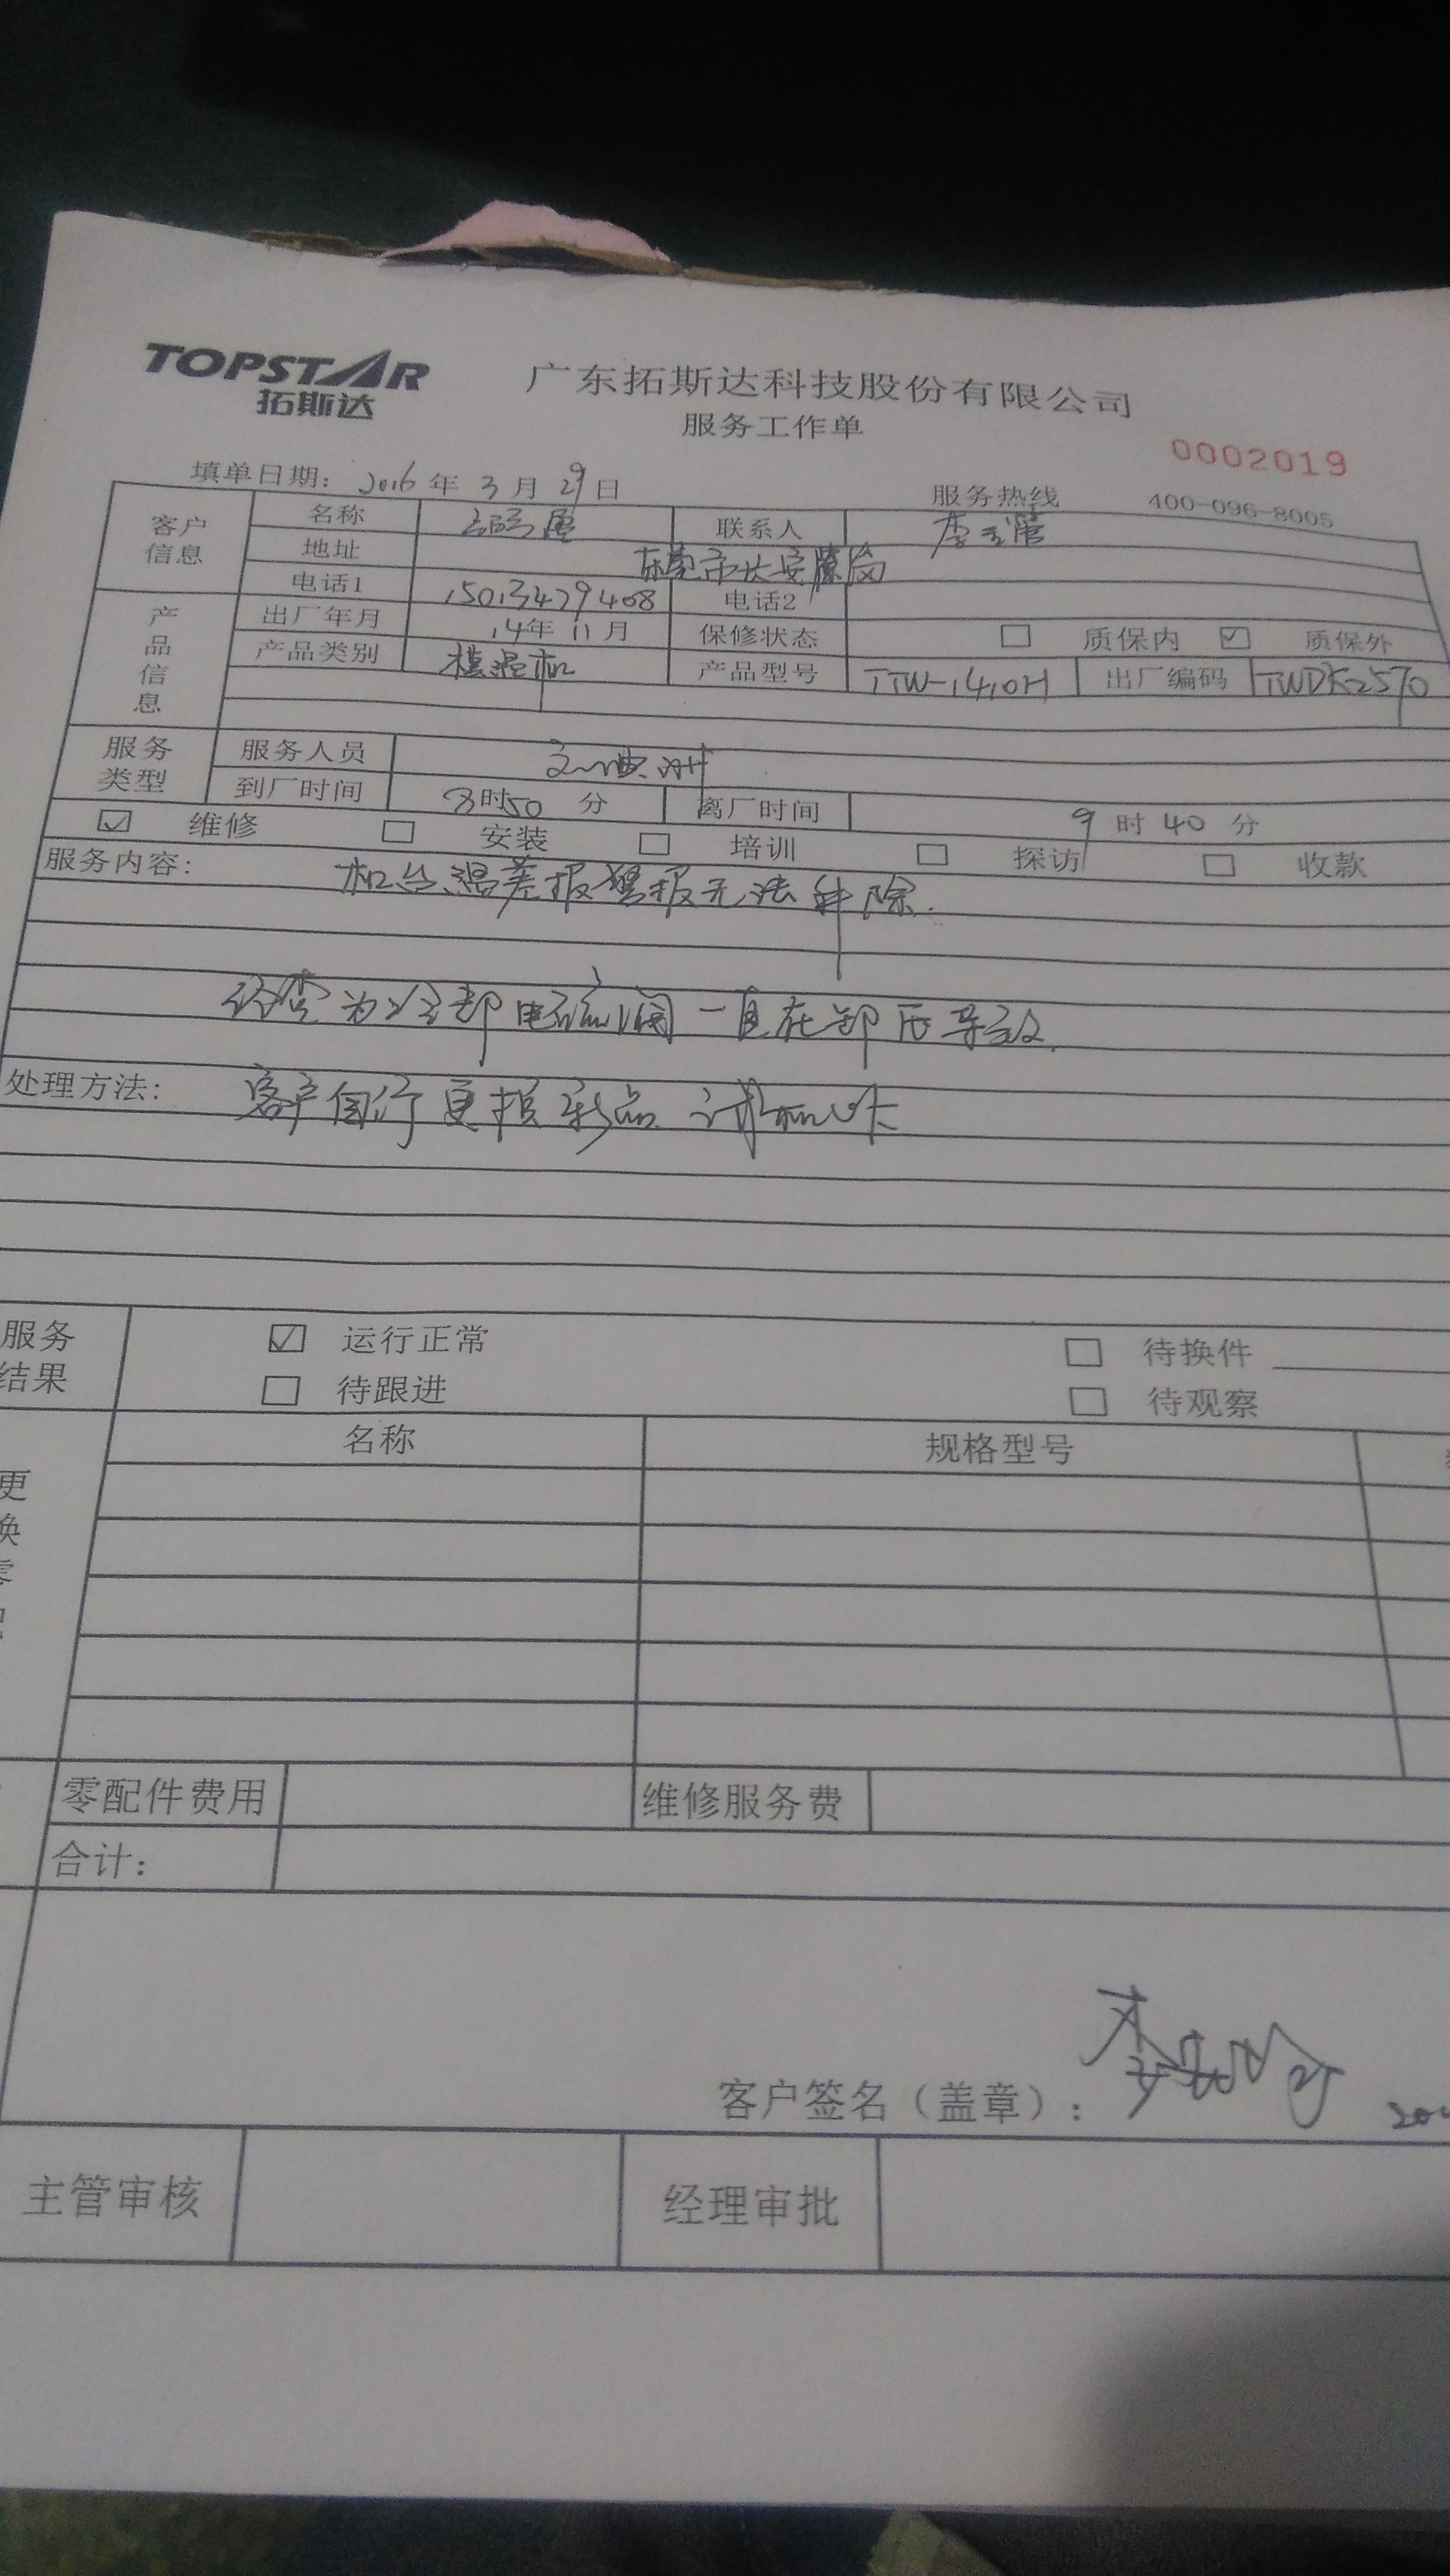 TOPSTAR
拓斯达
广东拓斯达科技股份有限公司
服务工作单
0002019
填单日期: 2016 年 3 月 29 日
服务热线 400-096-8005
客户信息
名称
联系人 李主管
地址 东莞市长安
电话1 15013479408 电话2
产品信息
出厂年月 14年 11月 保修状态 质保内 质保外
产品类别 模温机 产品型号 TTW-1410H 出厂编码 TWDK2570
服务类型
服务人员
到厂时间 8时50分 离厂时间 9时40分
维修 安装 培训 探访 收款
服务内容: 机台温差报警报无法解除.
经查为冷却电磁阀一直在卸压导致.
处理方法: 客户自行更换新品
服务结果
运行正常 待换件
待跟进 待观察
更换零配
名称 规格型号
零配件费用 维修服务费
合计:
客户签名(盖章):
主管审核 经理审批